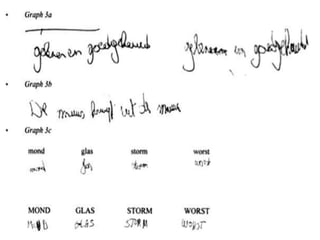 Graph 3a
gelezen en goedgekeurd gelezen en goedgekeurd
Graph 3b
De muur
Graph 3c
mond glas storm worst
mond glas storm worst
MOND GLAS STORM WORST
MOND GLAS STORM WORST